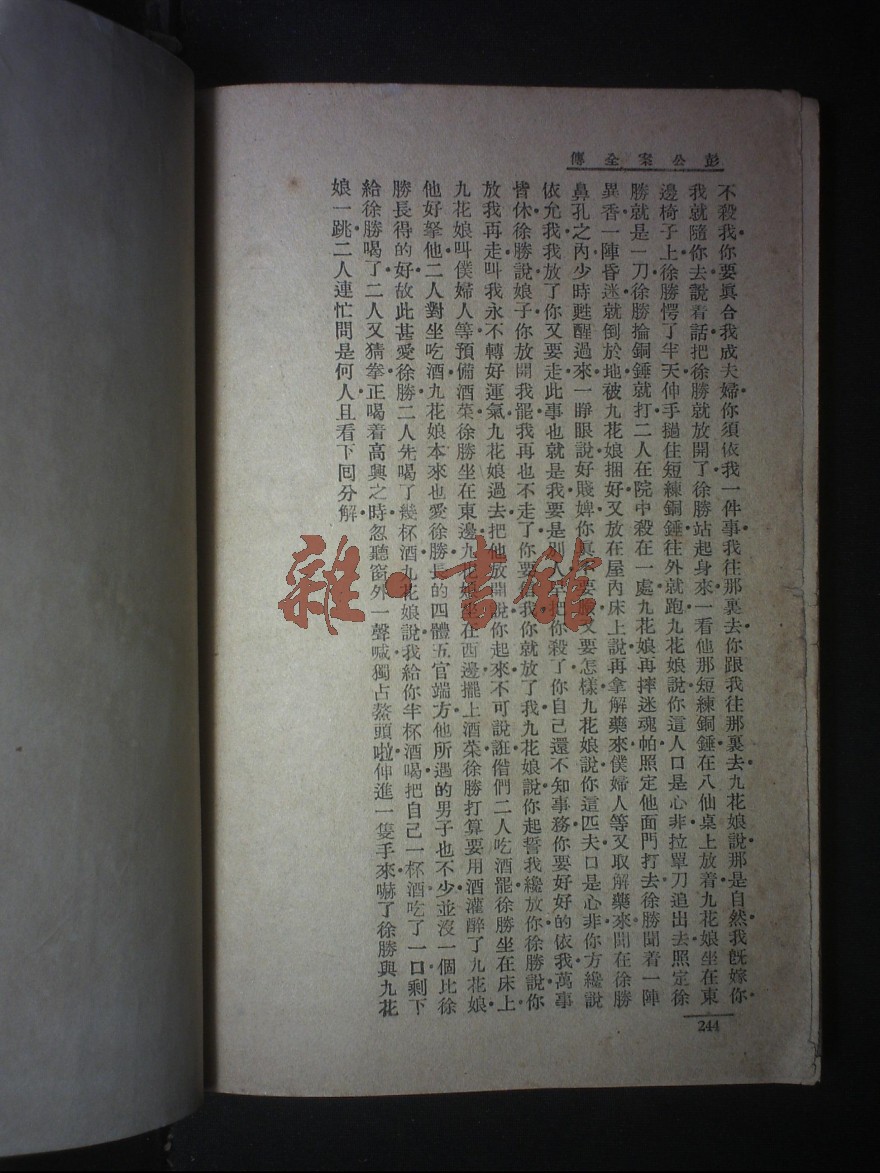 彭公案全傳
不殺我你要眞合我成夫婦你須依我一件事我往那裏去你跟我往那裏去九花娘說那是自然我旣嫁你
我就隨你去說着話把徐勝就放開了徐勝站起身來一看他那短練銅錘在八仙桌上放着九花娘坐在東
邊椅子上徐勝愕了半天伸手摀住短練銅錘往外就跑九花娘說你這人口是心非拉單刀追出去照定徐
勝就是一刀徐勝掄銅錘就打二人在院中殺在一處九花娘再摔迷魂帕照定他面門打去徐勝聞着一陣
異香一陣昏迷就倒於地被九花娘捆好又放在屋內床上說再拿解藥來僕婦人等又取解藥來聞在徐勝
鼻孔之內少時甦醒過來一睜眼說好賤婢你眞不要臉又要怎樣九花娘說你這匹夫口是心非你方纔說
依允我我放了你又要走此事也就是我要是別人早把你殺了你自己還不知事務你要好好的依我萬事
皆休徐勝說娘子你放開我罷我再也不走了你要信我你就放了我九花娘說你起誓我纔放你徐勝說你
放我再走叫我永不轉好運氣九花娘過去把他放開說你起來不可說誑偺們二人吃酒罷徐勝坐在床上
九花娘叫僕婦人等預備酒菜徐勝坐在東邊九花娘坐在西邊擺上酒菜徐勝打算要用酒灌醉了九花娘
他好拏他二人對坐吃酒九花娘本來也愛徐勝長的四體五官端方他所遇的男子也不少並沒一個比徐
勝長得的好故此甚愛徐勝二人先喝了幾杯酒九花娘說我給你半杯酒喝把自己一杯酒吃了一口剩下
給徐勝喝了二人又猜拳正喝着高興之時忽聽窗外一聲喊獨占鰲頭啦伸進一隻手來嚇了徐勝與九花
娘一跳二人連忙問是何人且看下囘分解
244
雜·書館